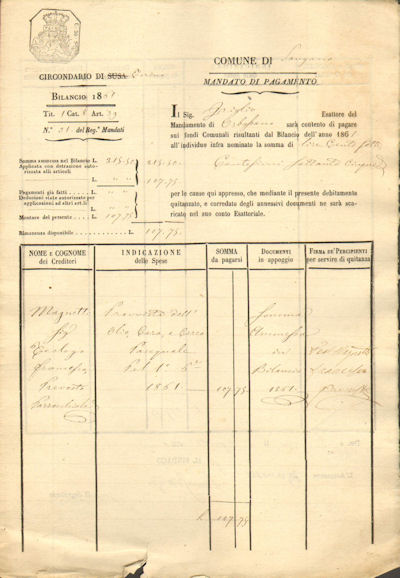 COMUNE DI Sangano
MANDATO DI PAGAMENTO
CIRCONDARIO DI SUSA Torino
BILANCIO 1861
Tit. 1 Cat. 6 Art. 39
N.° 31 del Reg.° Mandati
Somma ammessa nel Bilancio L. 215.50
Applicata con detrazione autorizzata alli articoli
215.50.
L. " "
107.75
Pagamenti già fatti . . L. " "
Deduzioni state autorizzate per applicazioni ad altri art.li
L. " "
Montare del presente . L. 107.75
Rimanenza disponibile . . . . . . . L. 107.75.
Il Sig. Esattore del
Mandamento di Orbassano sarà contento di pagare
sui fondi Comunali risultanti dal Bilancio dell'anno 1861
all'individuo infra nominato la somma di lire Cento sette
Centesimi settanta cinque
per le cause qui appresso, che mediante il presente debitamente
quitanzato, e corredato degli annessivi documenti ne sarà scaricato nel suo conto Esattoriale.
NOME E COGNOME
dei Creditori
INDICAZIONE
delle Spese
SOMMA
da pagarsi
DOCUMENTI
in appoggio
FIRMA DE' PERCIPIENTI
per servire di quitanza
Magnetti
Teologo
Francesco,
Prevosto
Parrocchiale
Provvista dell'
Olio, Cera, e Cereo
Pasquale
Pel 1°
1861
107.75
Somma
Ammessa
in
Bilancio
1861
L. 107.75